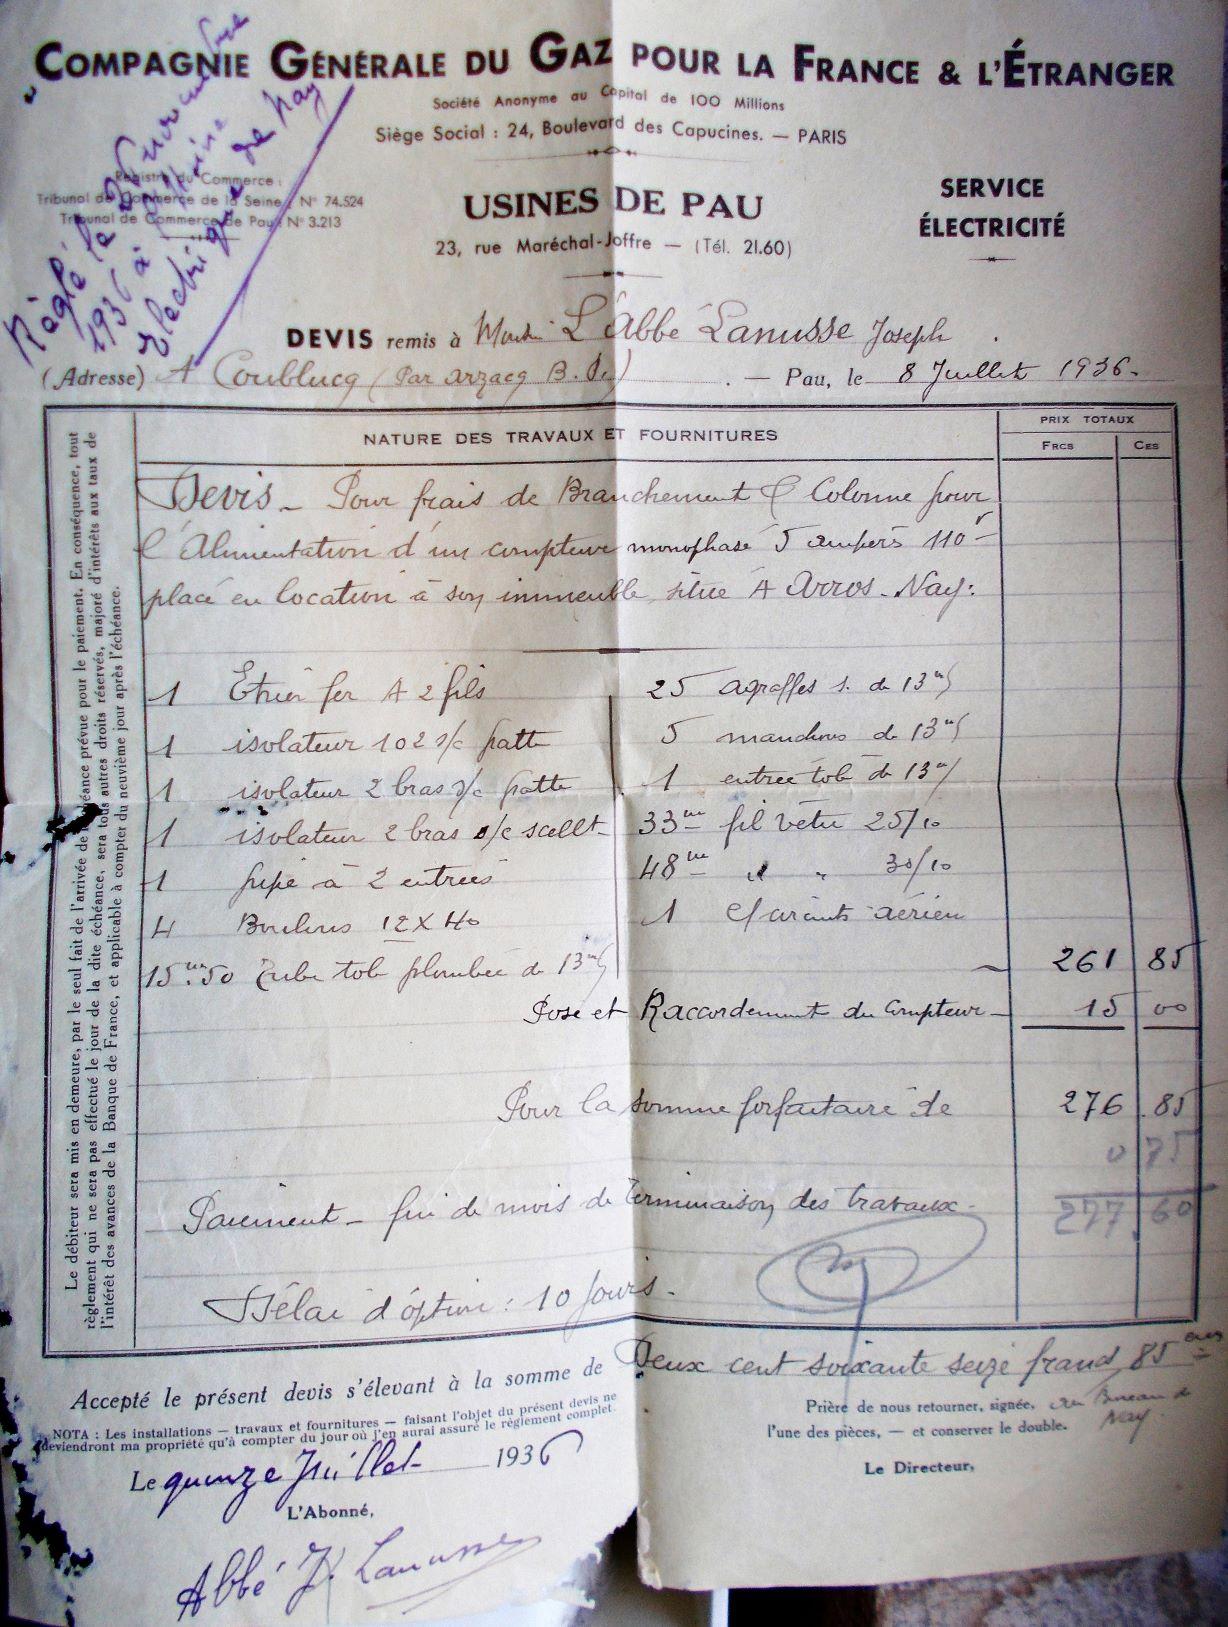 COMPAGNIE GÉNÉRALE DU GAZ POUR LA FRANCE & L'ÉTRANGER
Société Anonyme au Capital de 100 Millions
Siège Social : 24, Boulevard des Capucines. — PARIS
Réglé le 23 novembre
1936 à l'usine
électrique de Nay
Registre du Commerce :
Tribunal de Commerce de la Seine N° 74.524
Tribunal de Commerce de Pau N° 3.213
USINES DE PAU
23, rue Maréchal-Joffre — (Tél. 21.60)
SERVICE
ÉLECTRICITÉ
DEVIS remis à L'Abbé Lanusse Joseph
(Adresse) A Coublucq (Par Arzacq B. P.) — Pau, le 8 Juillet 1936.
NATURE DES TRAVAUX ET FOURNITURES
PRIX TOTAUX
FRCS CES
Devis - Pour frais de Branchement & Colonne pour
l'Alimentation d'un compteur monophasé 5 ampers 110v
placé en location à son immeuble, situé A Arros-Nay:
1 Etrier fer A 2 fils
25 agraffes s. de 13m/
1 isolateur 102 s/c patte
5 manchons de 13m/
1 isolateur 2 bras s/c patte
1 entrée tole de 13m/
1 isolateur 2 bras s/c scellt
33m fil vêtu 25/10
1 pipe à 2 entrées
48m " " 30/10
4 Boulons 12 X 40
1 aérien
15m.50 Tube tole plombée de 13m/
261 85
Pose et Raccordement du Compteur - 15 00
Pour la somme forfaitaire de 276 85
0 75
277 60
Paiement - fin de mois de terminaison des travaux -
Délai d'option : 10 jours -
Le débiteur sera mis en demeure, par le seul fait de l'arrivée de l'échéance prévue pour le paiement. En conséquence, tout
règlement qui ne sera pas effectué le jour de la dite échéance, sera tous autres droits réservés, majoré d'intérêts aux taux de
l'intérêt des avances de la Banque de France, et applicable à compter du neuvième jour après l'échéance.
Accepté le présent devis s'élevant à la somme de Deux cent soixante seize francs 85
NOTA : Les installations — travaux et fournitures — faisant l'objet du présent devis ne
deviendront ma propriété qu'à compter du jour où j'en aurai assuré le règlement complet.
Prière de nous retourner, signée, au Bureau de
Nay
l'une des pièces, — et conserver le double.
Le quinze Juillet 1936
Le Directeur,
L'Abonné,
Abbé J. Lanusse